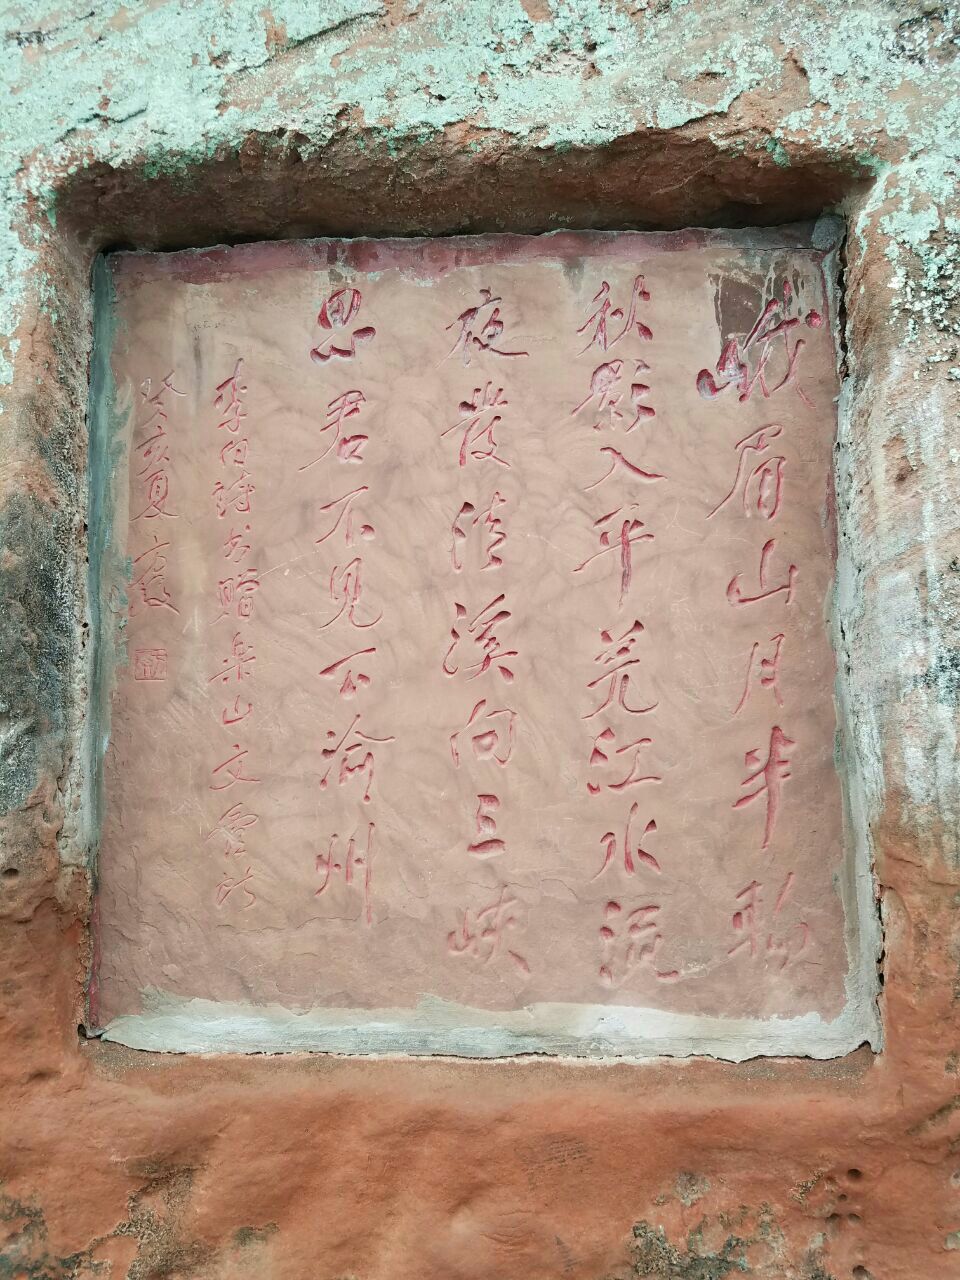 峨眉山月半轮
秋影入平羌江水流
夜發清溪向三峽
思君不见下渝州
李白詩书赠乐山文管所
癸亥夏 方毅